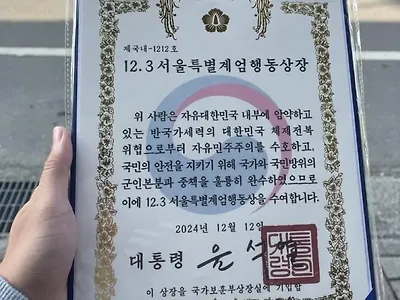 제국내-1212호
12.3 서울특별계엄행동상장
위 사람은 자유대한민국 내부에 암약하고
있는 반국가세력의 대한민국 체제전복
위협으로부터 자유민주주의를 수호하고,
국민의 안전을 지키기 위해 국가와 국민방위의
군인본분과 중책을 훌륭히 완수하였으므로
이에 12.3 서울특별계엄행동상을 수여합니다.
2024년 12월 12일
대통령 윤석열
이 상장을 국가보훈부상장실에 기입함